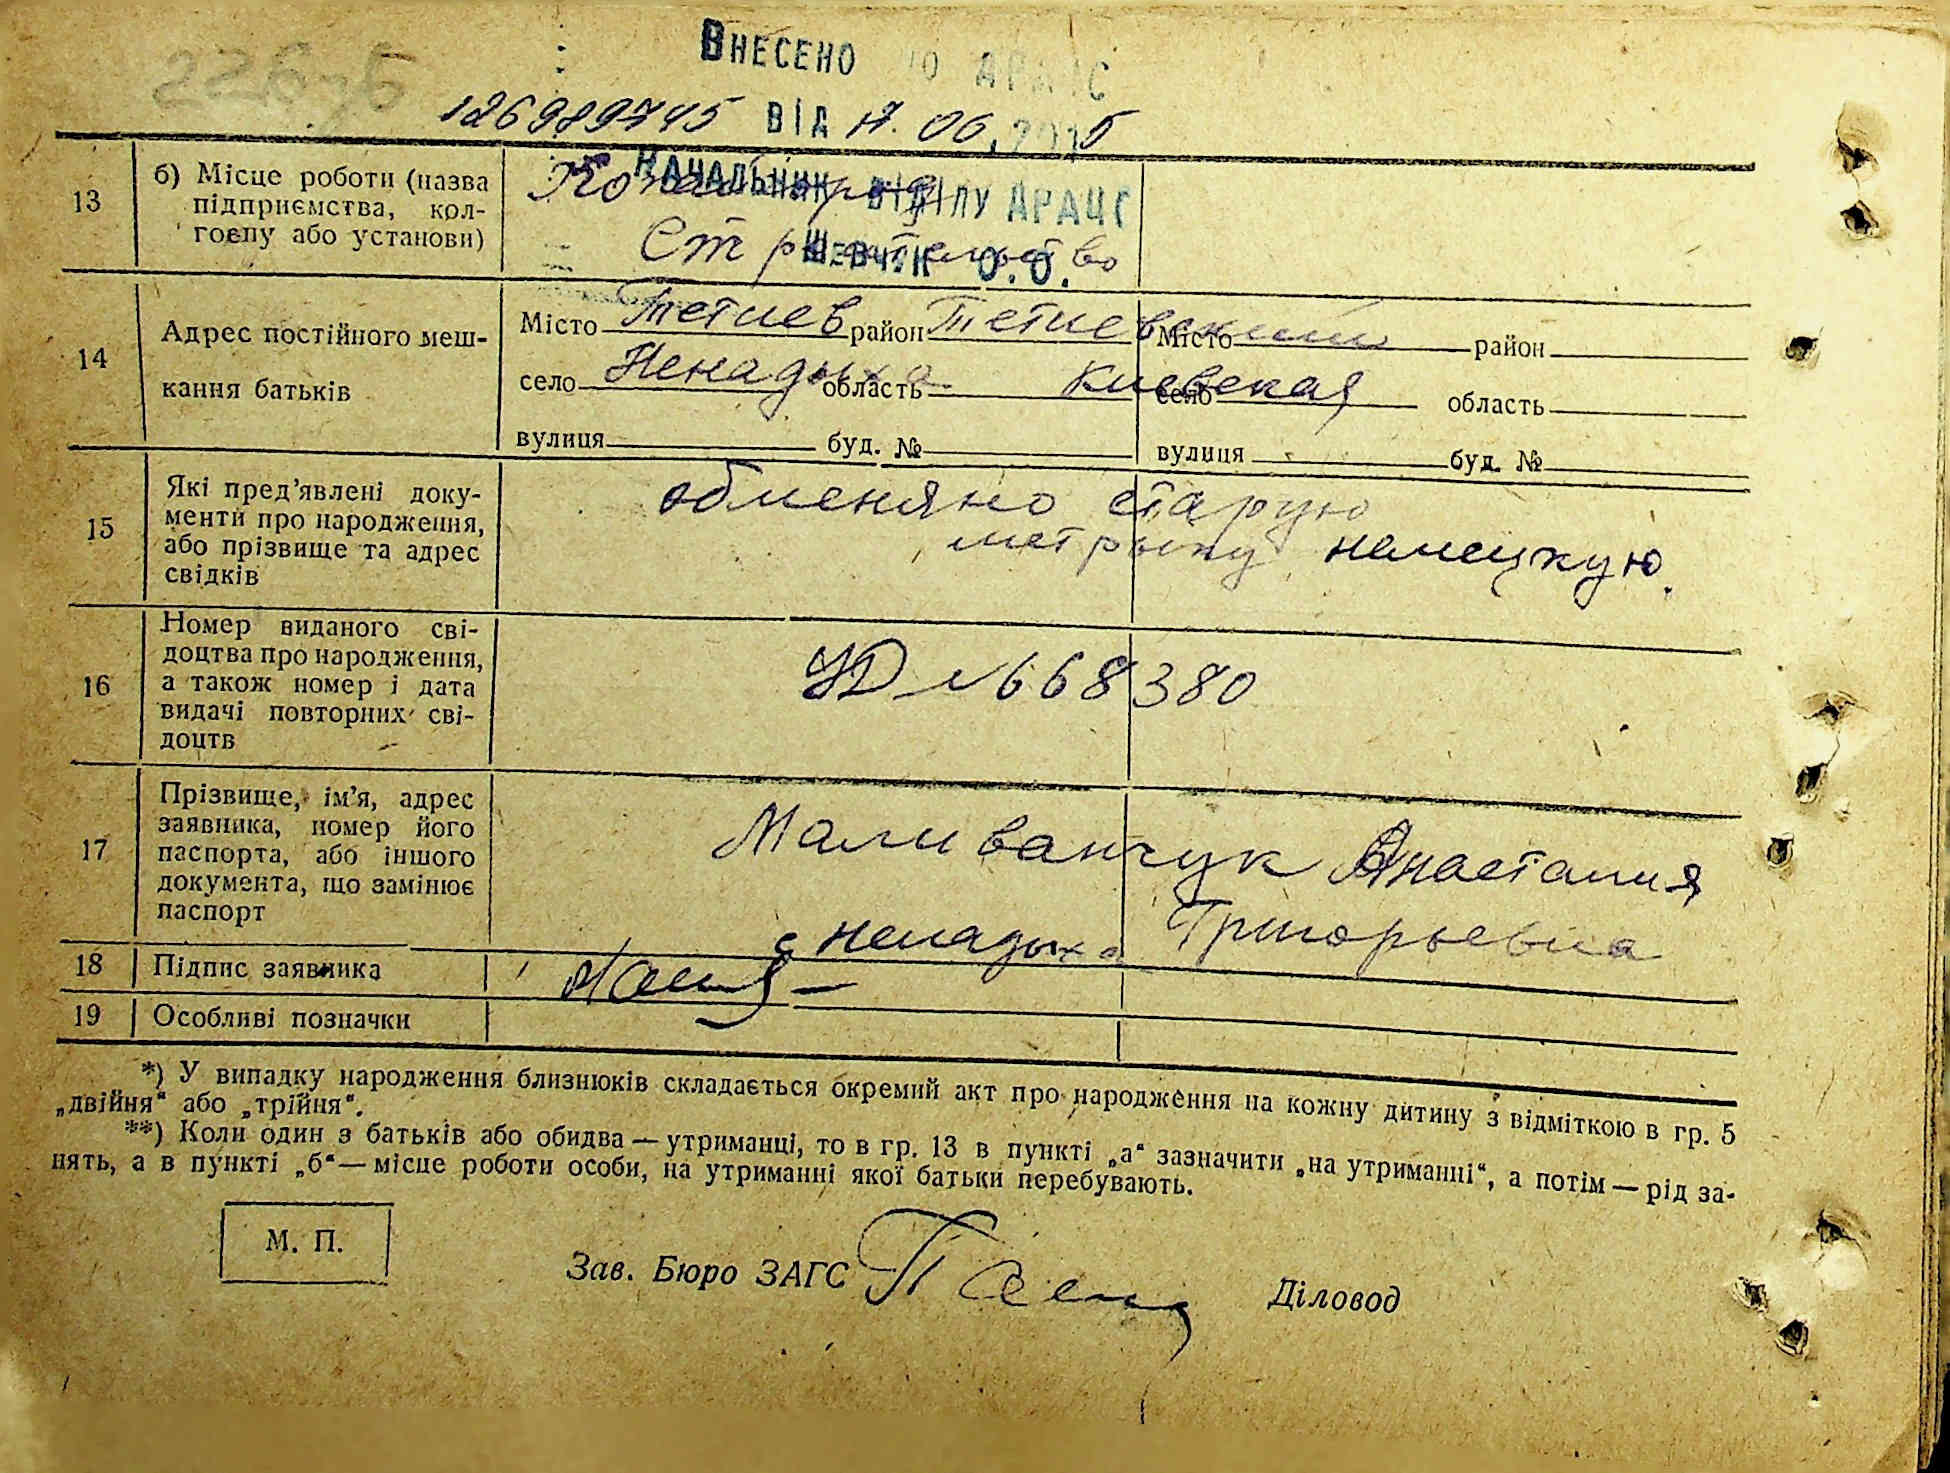 Внесено до АРАЦС
126989745 від 17.06.2015
Начальник відділу АРАЦС
Шевчук О.О.
13 б) Місце роботи (назва підприємства, колгоспу або установи)
Строительство
14 Адрес постійного мешкання батьків
Місто Тетиев район Тетиевский Місто район
село Ненадыха область Киевская село область
вулиця буд. № вулиця буд. №
15 Які пред’явлені документи про народження, або прізвище та адрес свідків
обменяно старую
метрыку немецкую.
16 Номер виданого свідоцтва про народження, а також номер і дата видачі повторних свідоцтв
УД № 668380
17 Прізвище, ім’я, адрес заявника, номер його паспорта, або іншого документа, що замінює паспорт
Маливанчук Анастасия
с Ненадыха Григорьевна
18 Підпис заявника
19 Особливі позначки
*) У випадку народження близнюків складається окремий акт про народження на кожну дитину з відміткою в гр. 5
„двійня“ або „трійня“.
**) Коли один з батьків або обидва — утриманці, то в гр. 13 в пункті „а“ зазначити „на утриманні“, а потім — рід за-
нять, а в пункті „б“ — місце роботи особи, на утриманні якої батьки перебувають.
М. П.
Зав. Бюро ЗАГС Діловод